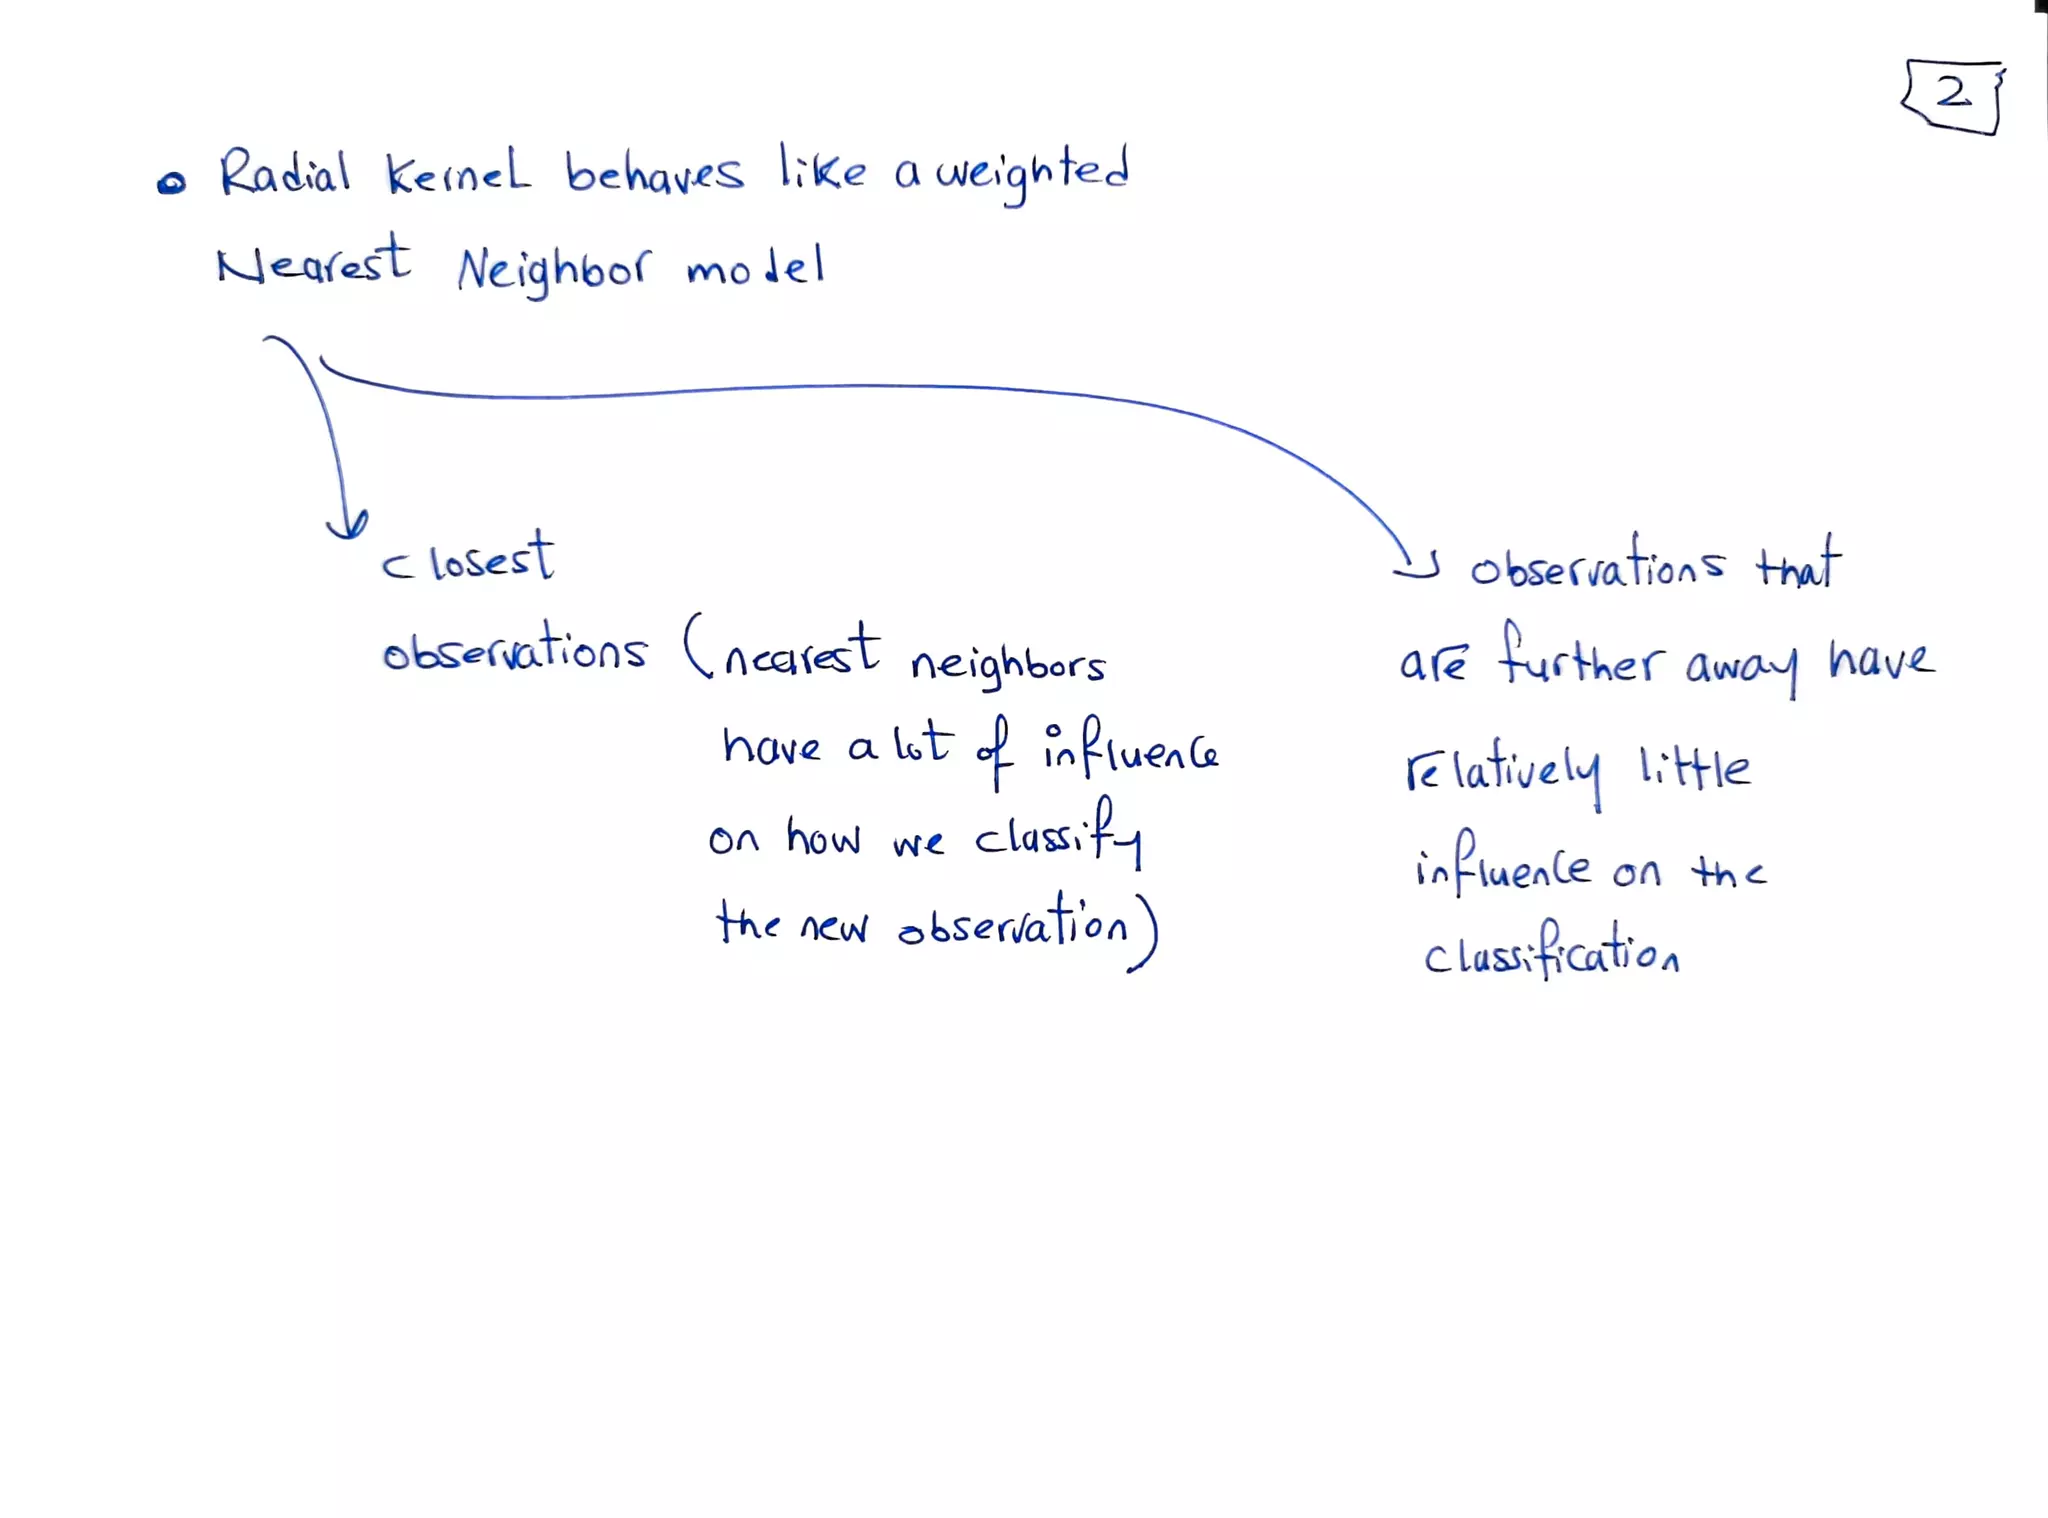 2
• Radial Kernel behaves like a weighted
Nearest Neighbor model
closest
observations (nearest neighbors
have a lot of influence
on how we classify
the new observation)
observations that
are further away have
relatively little
influence on the
classification